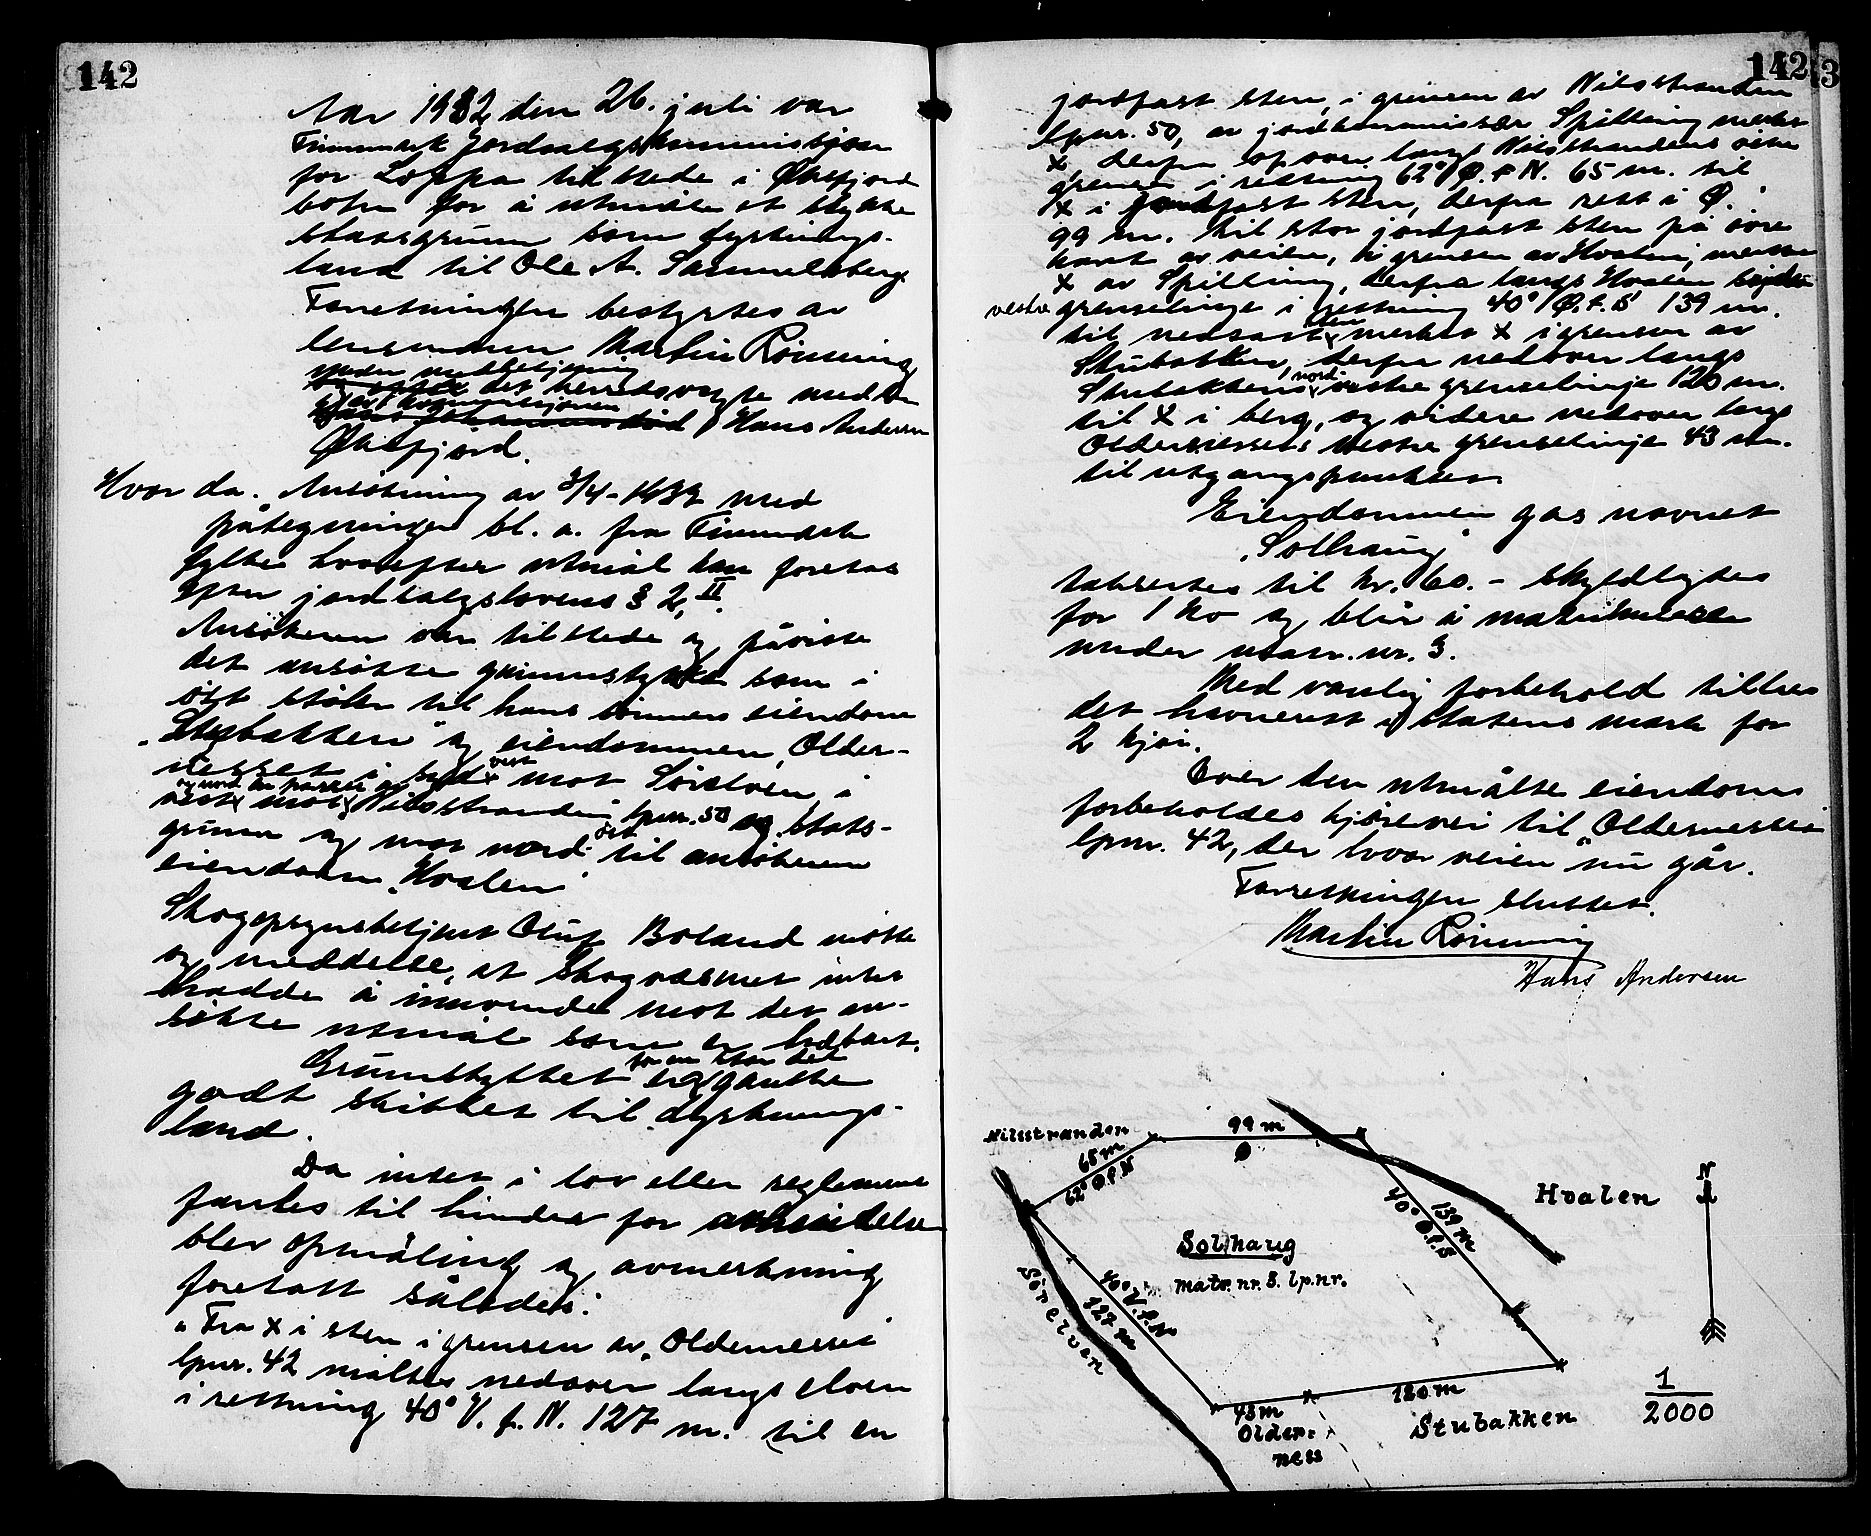 142
Aar 1932 den 26. juli var
Finnmark jordsalgskommisjon
for Loppa tilstede i Øksfjord
botn for å utmåle et stykke
statsgrunn som dyrknings-
land til Ole A. Samuelsberg.
Forretningen bestyrtes av
lensmann Martin Rønning
under medbetjening
det herredsvalgte medlem
av kommisjonen
Hans Andersen
Øksfjord.
Hvor da. Ansökning av 3/4-1932 med
påtegninger bl. a. fra Finnmark
fylke hvorefter utmål kan foretas
efter jordsalgslovens § 2, II.
Ansökeren var tilstede og påviste
det ansökte grunnstykke som i
öst stöter til hans sönners eiendom
„Stubakken" og eiendommen Older-
nesset i syd vest mot Sörelven, i
og med en parsel av
vest mot Nilsstranden lpnr. 50 og stats-
grunn og mot nord öst til ansökerens
eiendom „Hvalen"
Skogopsynsbetjent Oluf Boland mötte
og meddelte, at Skogvæsenet intet
hadde å innvende mot den an-
sökte utmål som er trebart.
for en stor del
Grunnstykket er ganske
godt skikket til dyrknings-
land.
Da intet i lov eller reglement
fantes til hinder for avhendelse
blev opmåling og avmerkning
foretatt således:
„Fra x i sten i grensen av „Oldernesset
lpnr. 42 måltes nedover langs elven
i retning 40° V. f. N. 127 m. til en
142
3
jordfast sten, i grensen av Nilsstranden
lpnr. 50, av jordkommissær Spilling merket
x derfra opover langs Nilsstrandens östre
grense i retning 62° Ø. f. N. 65 m. til
x i jordfast sten, derfra rett i Ø.
99 m. til stor jordfast sten på övre
kant av veien, i grensen av Hvalen, merket
x av Spilling, derfra langs Hvalen
vestre grenselinje i retning 40° Ø. f. S 139 m.
til nedsatt sten merket x i grensen av
Stubakken, derfra nedover langs
Stubakkens nord vestre grenselinje 120 m.
til x i berg, og videre nedover langs
Oldernessets vestre grenselinje 43 m.
til utgangspunktet.
Eiendommen gas navnet
„Solhaug"
takstertes til kr. 60.- skyldlagtes
for 1 ko og blir å matrikulere
under matr. nr. 3.
Med vanlig forbehold tillaes
det havnerett i statens mark for
2 kjör.
Over den utmålte eiendom
forbeholdes kjörevei til „Oldernesset
lpnr. 42, der hvor veien nu går.
Forretningen sluttet.
Martin Rønning
Hans Andersen
Nilsstranden
99 m
Ø
65 m
62° Ø.f.N
Hvalen
N
139 m
40° Ø.f.S
Solhaug
matr. nr. 3. lp.nr.
40° V.f.N
127 m
Sörelven
120 m
43 m
Older-
ness
Stubakken
1
2000